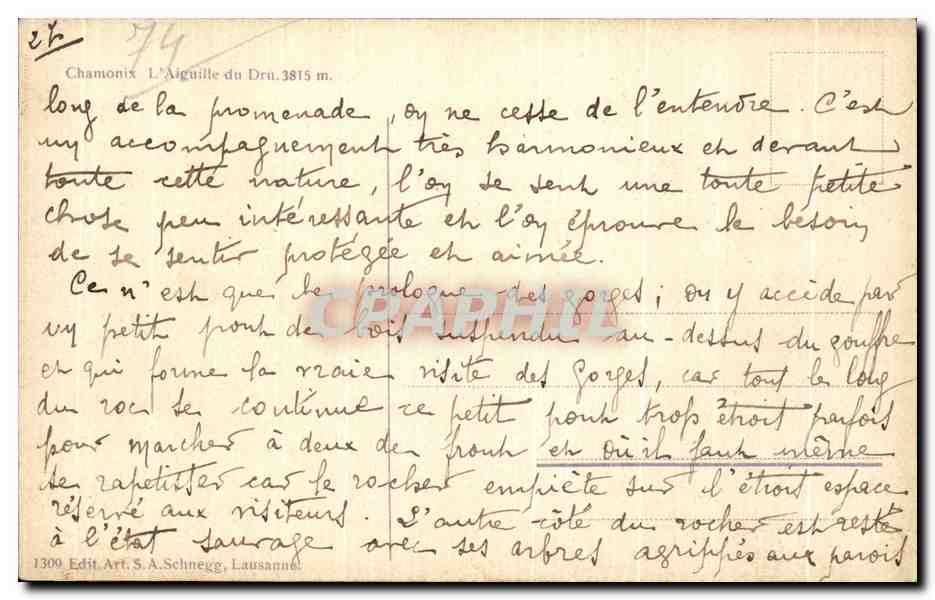 27
74
Chamonix L'Aiguille du Dru. 3815 m.
long de la promenade, on ne cesse de l'entendre. C'est
un accompagnement très harmonieux et devant
toute cette nature, l'on se sent une toute petite
chose peu intéressante et l'on éprouve le besoin
de se sentir protégée et aimée.
Ce n'est que le prologue des gorges; on y accède par
un petit pont de bois suspendu au-dessus du gouffre
et qui forme la vraie visite des Gorges, car tout le long
du roc se continue ce petit pont trop étroit parfois
pour marcher à deux de front et où il faut même
se rapetisser car le rocher empiète sur l'étroit espace
réservé aux visiteurs. L'autre côté du rocher est resté
à l'état sauvage avec ses arbres agrippés aux parois
1309 Edit. Art. S. A. Schnegg, Lausanne.
CPAPHIL